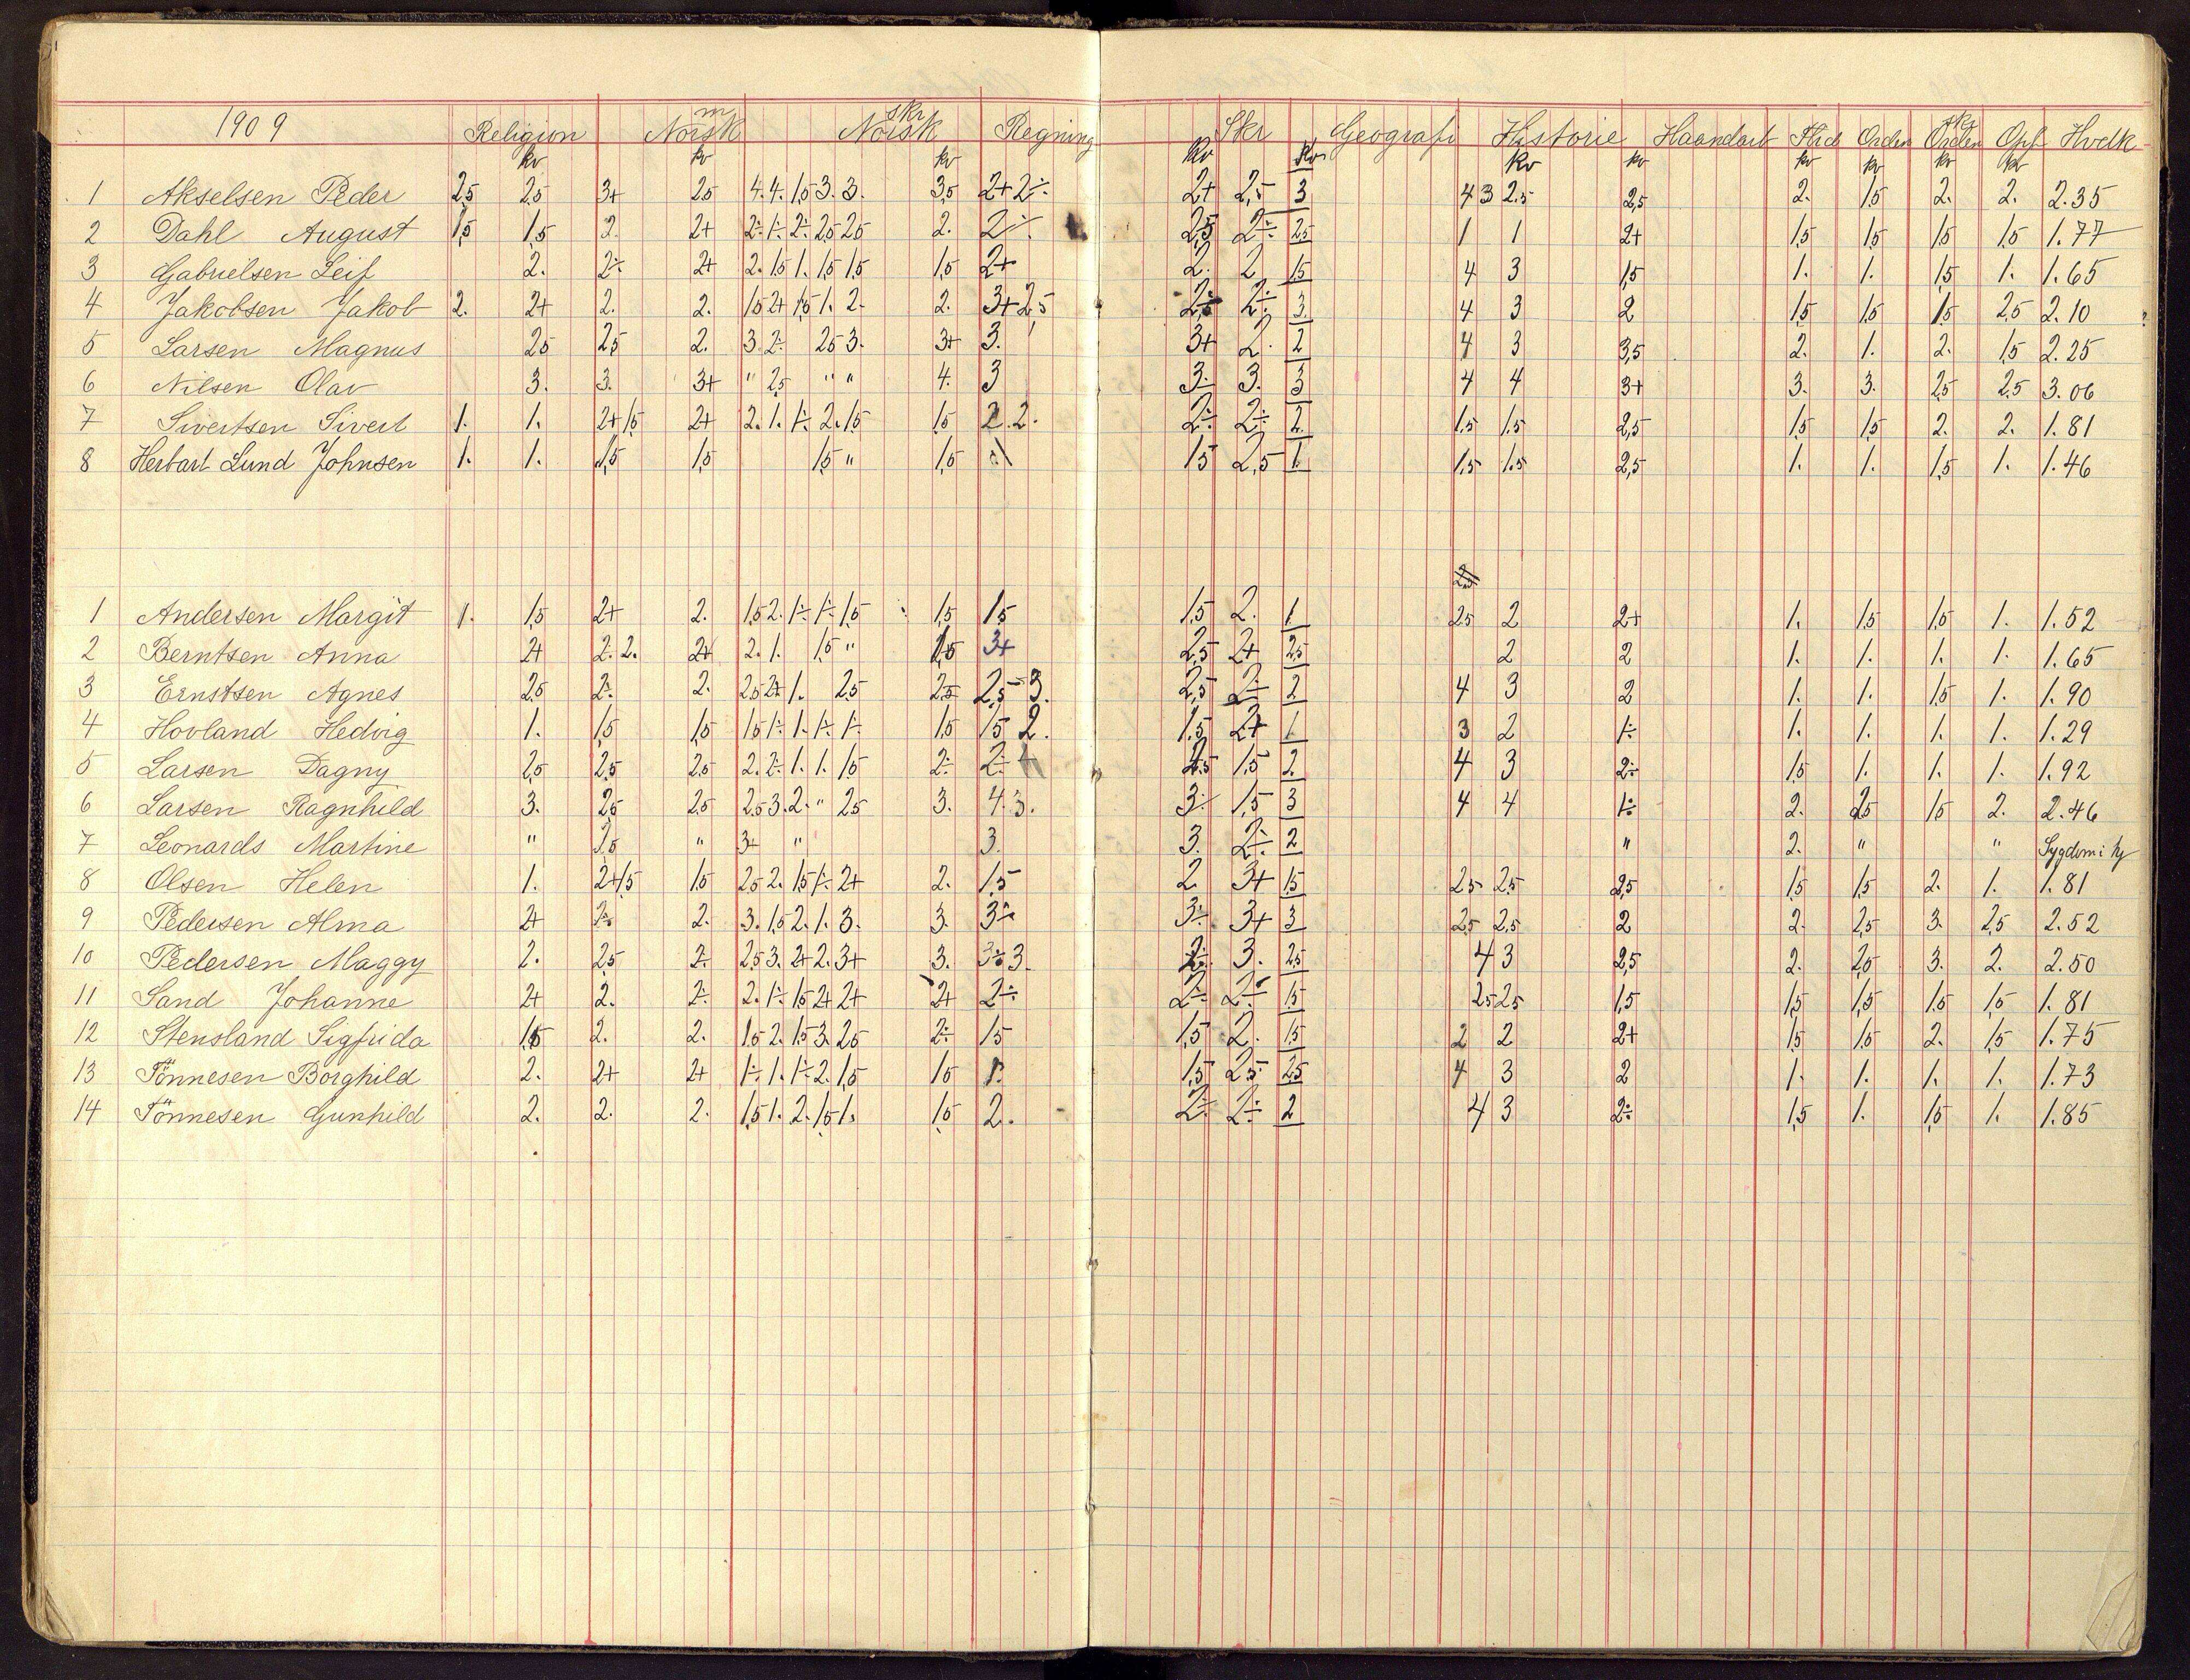 1909 Religion m Norsk skr Norsk Regning Skr Geografi Historie Haandarb Flid Orden skr Orden Opf Hvdk
kv kv kv kv kv kv kv kv kv kv kv
1 Akselsen Peder 2,5 2,5 3+ 2,5 4. 4. 1,5 3. 3. 3,5 2+ 2÷. 2+ 2,5 3 4 3 2.5 2,5 2. 1,5 2. 2. 2.35
2 Dahl August 1,5 1,5 2. 2+ 2÷ 1÷ 2÷ 2,5 2,5 2. 2÷. 2,5 2÷ 2,5 1 1 2+ 1,5 1,5 1,5 1,5 1.77
3 Gabrielsen Leif 2. 2÷ 2+ 2. 1,5 1. 1,5 1,5 1,5 2+ 2. 2 1,5 4 3 1,5 1. 1. 1,5 1. 1.65
4 Jakobsen Jakob 2. 2+ 2. 2. 1,5 2+ 1,5 1. 2. 2. 3+ 2,5 2÷ 3. 4 3 2 1,5 1,5 1,5 2,5 2.10
5 Larsen Magnus 2,5 2,5 2. 3. 2÷ 2,5 3. 3+ 3. 3+ 2. 2 4 3 3,5 2. 1. 2. 1,5 2.25
6 Nilsen Olav 3. 3. 3+ " 2,5 " " 4. 3 3÷ 3. 3 4 4 3+ 3. 3. 2,5 2,5 3.06
7 Sivertsen Sivert 1. 1. 2+ 1,5 2+ 2. 1. 1÷ 2. 1,5 1,5 2. 2. 2÷ 2÷ 2. 1.5 1.5 2,5 1,5 1,5 2. 2. 1.81
8 Herbart Lund Johnsen 1. 1. 1,5 1,5 1,5 " 1,5 1,5 2,5 1. 1.5 1.5 2,5 1. 1. 1,5 1. 1.46
1 Andersen Margit 1. 1,5 2+ 2. 1,5 2. 1÷ 1÷ 1,5 1,5 1,5 1,5 2. 1 2,5 2 2+ 1. 1,5 1,5 1. 1.52
2 Berntsen Anna 2+ 2. 2. 2+ 2. 1. 1,5 " 3+ 2,5 2+ 2,5 2 2 1. 1. 1. 1. 1.65
3 Ernstsen Agnes 2,5 2÷ 2. 2,5 2+ 1. 2,5 2,5 2,5 3. 2,5 2÷ 2 4 3 2 1. 1. 1,5 1. 1.90
4 Hovland Hedvig 1. 1,5 1,5 1,5 1÷ 1. 1÷ 1÷ 1,5 1,5 2. 1,5 2+ 1 3 2 1÷ 1. 1. 1. 1. 1.29
5 Larsen Dagny 2,5 2,5 2,5 2. 2÷ 1. 1. 1,5 2÷ 2÷ 1,5 2. 4 3 2÷ 1,5 1. 1. 1. 1.92
6 Larsen Ragnhild 3. 2,5 2,5 2,5 3. 2. " 2,5 3. 4. 3. 3÷ 1,5 3 4 4 1÷ 2. 2,5 1,5 2. 2.46
7 Leonards Martine " " 3+ " 3. 3. 2÷ 2 " 2. " " Sygdom i
8 Olsen Helen 1. 2+ 1,5 1,5 2,5 2. 1,5 1÷ 2+ 2. 1,5 2. 3+ 1,5 2,5 2,5 2,5 1,5 1,5 2. 1. 1.81
9 Pedersen Alma 2+ 2÷ 2. 3. 1,5 2. 1. 3. 3. 3÷ 3÷ 3+ 3 2,5 2,5 2 2. 2,5 3. 2,5 2.52
10 Pedersen Maggy 2. 2,5 2÷ 2,5 3. 2+ 2. 3+ 3. 3÷ 3. 2÷ 3. 2,5 4 3 2,5 2. 2,5 3. 2. 2.50
11 Sand Johanne 2+ 2. 2÷ 2. 1÷ 1,5 2+ 2+ 2+ 2÷ 2÷ 2÷ 1,5 2,5 2,5 1,5 1,5 1,5 1,5 1,5 1.81
12 Stensland Sigfrida 1,5 2. 2. 1,5 2. 1,5 3. 2,5 2÷ 1,5 1,5 2. 1,5 2 2 2+ 1,5 1,5 2. 1,5 1.75
13 Tönnesen Borghild 2. 2+ 2+ 1÷ 1. 1÷ 2. 1,5 1,5 1. 1,5 2,5 2,5 4 3 2 1. 1. 1. 1. 1.73
14 Tönnesen Gunhild 2. 2. 2. 1,5 1. 2. 1,5 1. 1,5 2. 2÷ 2÷ 2 4 3 2÷ 1,5 1. 1,5 1. 1.85